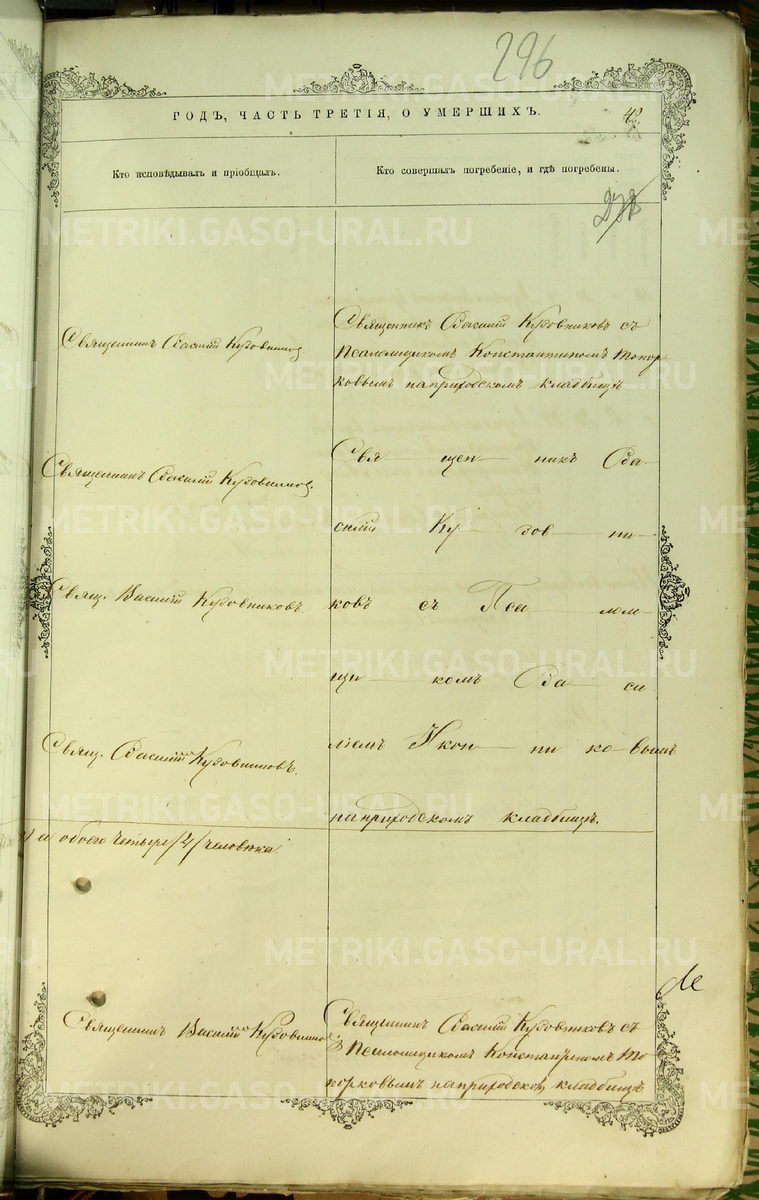 296
ГОДЪ, ЧАСТЬ ТРЕТІЯ, О УМЕРШИХЪ.
Кто исповѣдывалъ и пріобщалъ.
Кто совершалъ погребеніе, и гдѣ погребены.
Священникъ Василій Кудовниковъ
Священникъ Василій Кудовниковъ съ
Псаломщикомъ Константиномъ Топор
ковымъ на приходскомъ кладбищѣ
Священникъ Василій Кудовниковъ.
Свящ. Василій Кудовниковъ
Свящ. Василій Кудовниковъ.
Свя щен никъ Ва
силій Ку дов ни
ковъ съ Пса лом
щи комъ Ва си
ліемъ Икон ни ко вымъ
на приходскомъ кладбищѣ.
обоего четыре /4/ человѣка
Священникъ Василій Кудовниковъ
Священникъ Василій Кудовниковъ съ
Псаломщикомъ Константиномъ То
порковымъ на приходском кладбищѣ
METRIKI.GASO-URAL.RU